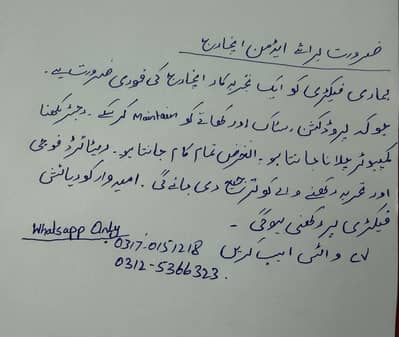 ضرورت برائے ایڈمن انچارج
ہماری فیکٹری کو ایک تجربہ کار انچارج کی فوری ضرورت ہے۔
جو کہ پروڈکشن، سٹاک اور کھاتے کو Maintain کر سکے۔ رجسٹر لکھنا
کمپیوٹر چلانا جانتا ہو۔ الغرض تمام کام جانتا ہو۔ ریٹائرڈ فوجی
اور تجربہ رکھنے والے کو ترجیح دی جائے گی۔ امیدوار کو رہائش
فیکٹری پر رکھنی ہوگی۔
Whatsapp Only
0317-0151218 واٹس ایپ کریں
0312-5366323.